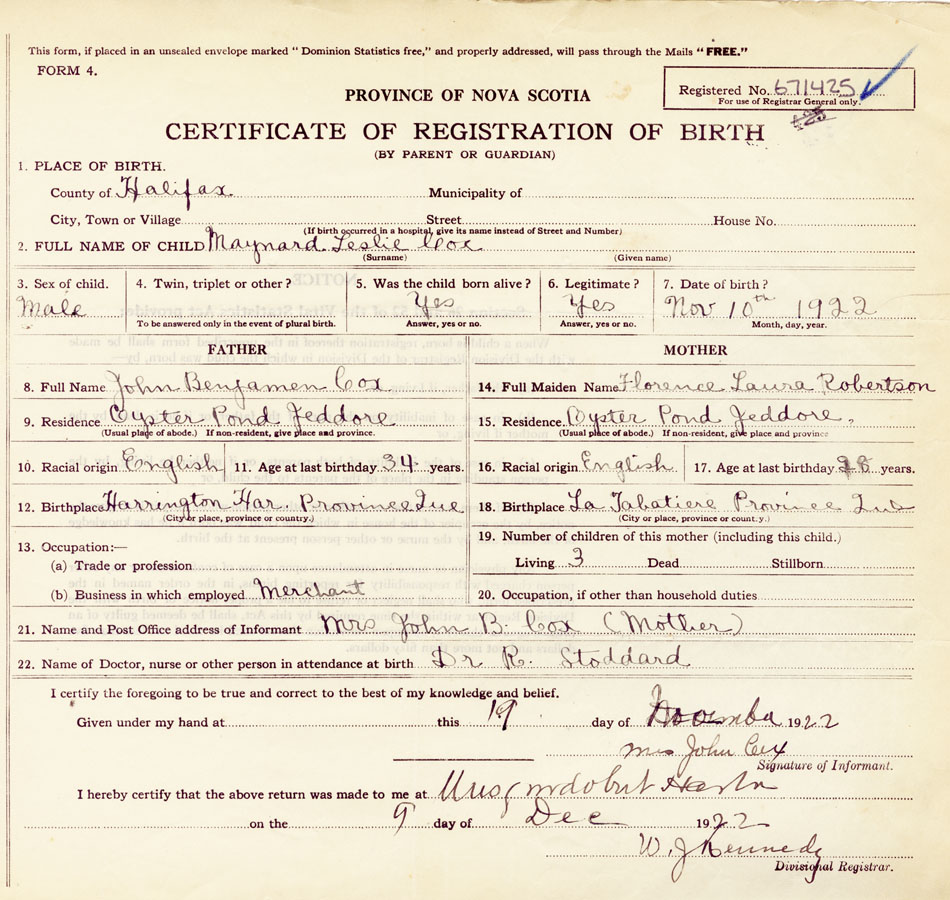 This form, if placed in an unsealed envelope marked "Dominion Statistics free," and properly addressed, will pass through the Mails "FREE."
FORM 4.
Registered No. 671425
For use of Registrar General only.
PROVINCE OF NOVA SCOTIA
CERTIFICATE OF REGISTRATION OF BIRTH
(BY PARENT OR GUARDIAN)
1. PLACE OF BIRTH.
County of Halifax Municipality of
City, Town or Village Street House No.
(If birth occurred in a hospital, give its name instead of Street and Number)
2. FULL NAME OF CHILD Maynard Leslie Cox
(Surname) (Given name)
3. Sex of child. 4. Twin, triplet or other? 5. Was the child born alive? 6. Legitimate? 7. Date of birth?
Male Yes Yes Nov 10th 1922
To be answered only in the event of plural birth. Answer, yes or no. Answer, yes or no. Month, day, year.
FATHER MOTHER
8. Full Name John Benjamen Cox 14. Full Maiden Name Florence Laura Robertson
9. Residence Oyster Pond Jeddore 15. Residence Oyster Pond Jeddore,
(Usual place of abode.) If non-resident, give place and province. (Usual place of abode.) If non-resident, give place and province
10. Racial origin English 11. Age at last birthday 34 years. 16. Racial origin English 17. Age at last birthday 28 years.
12. Birthplace Harrington Har. Province Que 18. Birthplace La Tabatiere Province Que
(City or place, province or country.) (City or place, province or country.)
13. Occupation:— 19. Number of children of this mother (including this child.)
(a) Trade or profession Living 3 Dead Stillborn
(b) Business in which employed Merchant 20. Occupation, if other than household duties
21. Name and Post Office address of Informant Mrs John B. Cox (Mother)
22. Name of Doctor, nurse or other person in attendance at birth Dr R. Stoddard
I certify the foregoing to be true and correct to the best of my knowledge and belief.
Given under my hand at this 19 day of 1922
Mrs John Cox
Signature of Informant.
I hereby certify that the above return was made to me at
on the 9 day of Dec 1922
W. J Kennedy
Divisional Registrar.